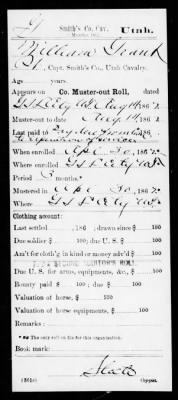 Smith's Co. Cav. Utah.
William Grant
Capt. Smith's Co., Utah Cavalry.
Age years.
Appears on
Co. Muster-out Roll, dated
G S L City U.T. Aug 14, 1862.
Muster-out to date Aug 14, 186
Last paid to
When enrolled Apr 30, 1862.
Where enrolled G S L City U.T.
Period 3 months.
Mustered in Apr 30, 1862.
Where G S L City U.T.
Clothing account:
Last settled , 186 ; drawn since $ 100
Due soldier $ 100; due U. S. $ 100
Am't for cloth'g in kind or money adv'd $ 100
Due U. S. for arms, equipments, &c., $ 100
Bounty paid $ 100; due $ 100
Valuation of horse, $ 100
Valuation of horse equipments, $ 100
Remarks:
* The only roll on file for this organization.
Book mark:
Copyist.